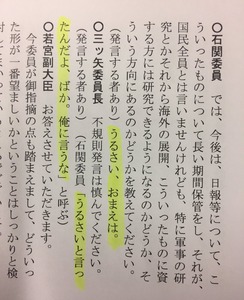 〇石関委員　では、今後は、日報等について、こ
ういったものについて長い期間保管をし、それが、
国民全員とは言いませんけれども、特に軍事の研
究とかそれから海外の展開、こういったものに資
する方には研究できるようになるのかどうか、そ
ういう方向にあるのかどうかを教えてください。
（発言する者あり）うるさい、おまえは。
〇三ッ矢委員長　不規則発言は慎んでください。
（発言する者あり）（石関委員「うるさいと言っ
たんだよ、ばか。俺に言うな」と呼ぶ）
〇若宮副大臣　お答えさせていただきます。
今委員が御指摘の点も踏まえまして、どういっ
た形が一番望ましいかということはしっかりと検